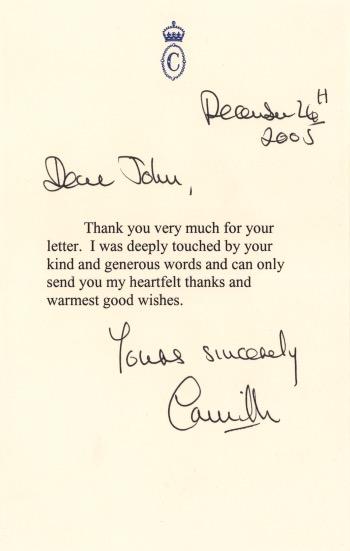 C
December 26th
2005
Dear John,
Thank you very much for your
letter. I was deeply touched by your
kind and generous words and can only
send you my heartfelt thanks and
warmest good wishes.
Yours sincerely
Camilla